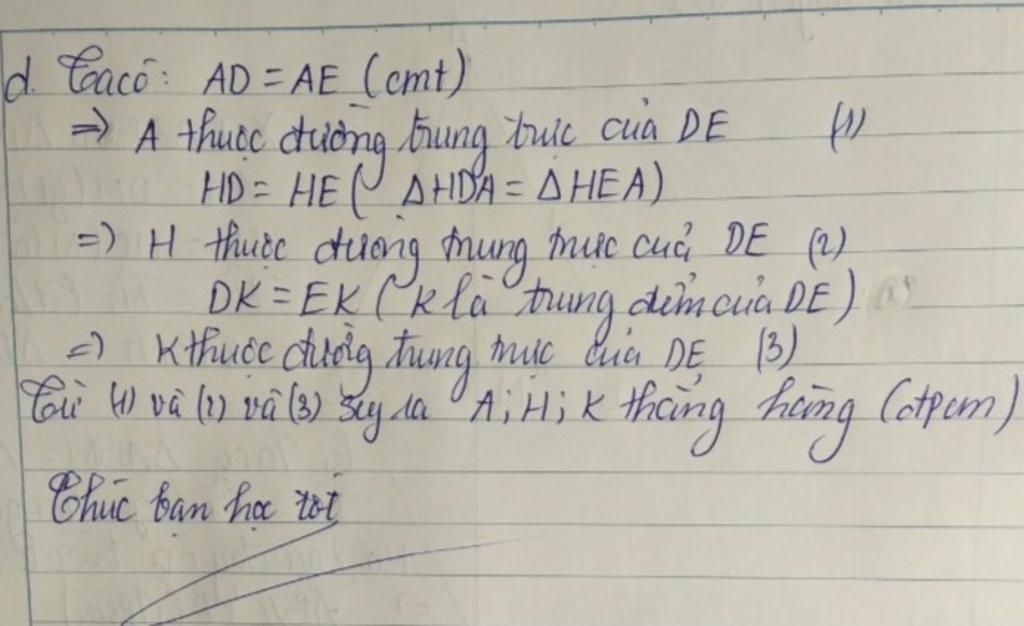 d. Ta có: AD = AE (cmt)
=> A thuộc đường trung trực của DE (1)
HD = HE (ΔHDA = ΔHEA)
=> H thuộc đường trung trực của DE (2)
DK = EK (K là trung điểm của DE)
=> K thuộc đường trung trực của DE (3)
Từ (1) và (2) và (3) suy ra A; H; K thẳng hàng (đpcm)
Chúc bạn học tốt